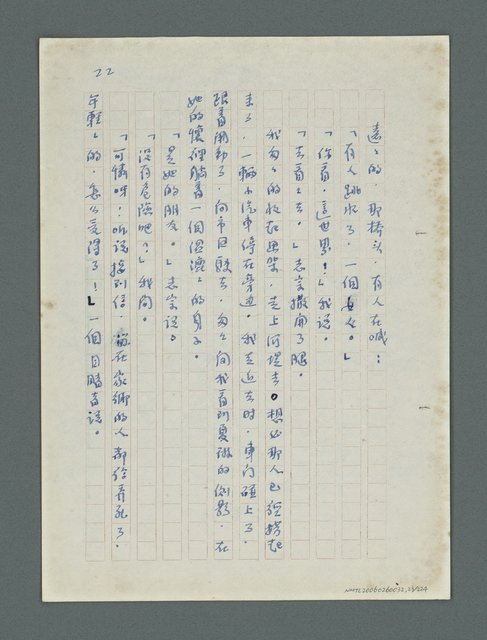 22
遠々的，那橋头，有人在喊：
「有人跳水了，一個女人。」
「你看，這世界！」我說。
「去看々去。」志宏撒開了腿。
我匆々的收在畫架，走上河堤去。想必那人已經撈起
來了，一輛小汽車停在旁邊。我走近去時，車门碰上了，
跟着開動了，向市區駛去，匆々间我看到夏
的側影，在
她的懷裡躺着一個濕漉々的身子。
「是她的朋友。」志宏說。
「沒有危險吧？」我问。
「可憐呀！听說接到信，留在家鄉的人都給弄死了，
年輕々的，怎么受得了！」一個目睹者說。
NMTL20060260032,23/224